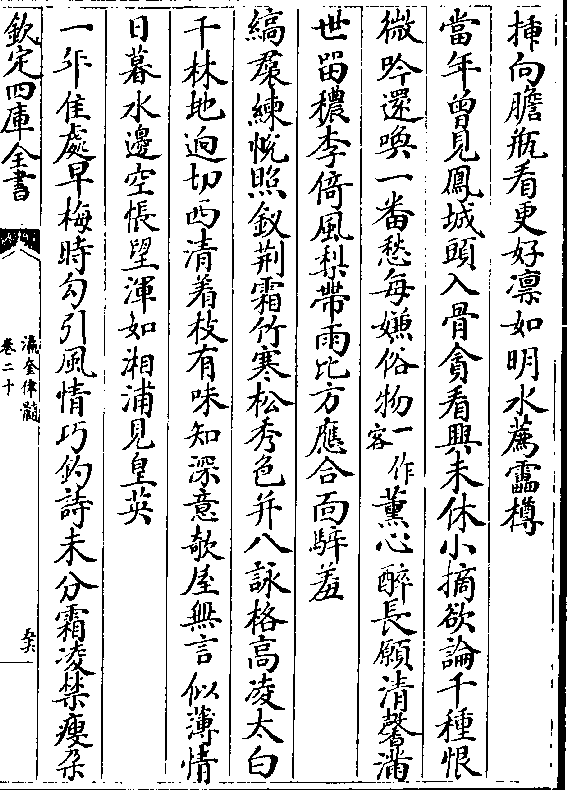 揷向膽瓶看更好凛如明水薦罍樽
當年曾見鳳城頭入骨貪看興未休小摘欲論千種恨
微吟還喚一番愁每嫌俗物一作客薫心醉長願清馨滿
世留穠李倚風梨帶雨比方應合面騂羞
縞裠練帨照釵荆霜竹寒松秀色并八詠格高凌太白
千林地逈切西清着枝有味知深意欹屋無言似薄情
日暮水邊空悵望渾如湘浦見皇英
一年佳處早梅時勾引風情巧釣詩未分霜凌禁瘦朶
欽定四庫全書
瀛奎律髓
卷二十